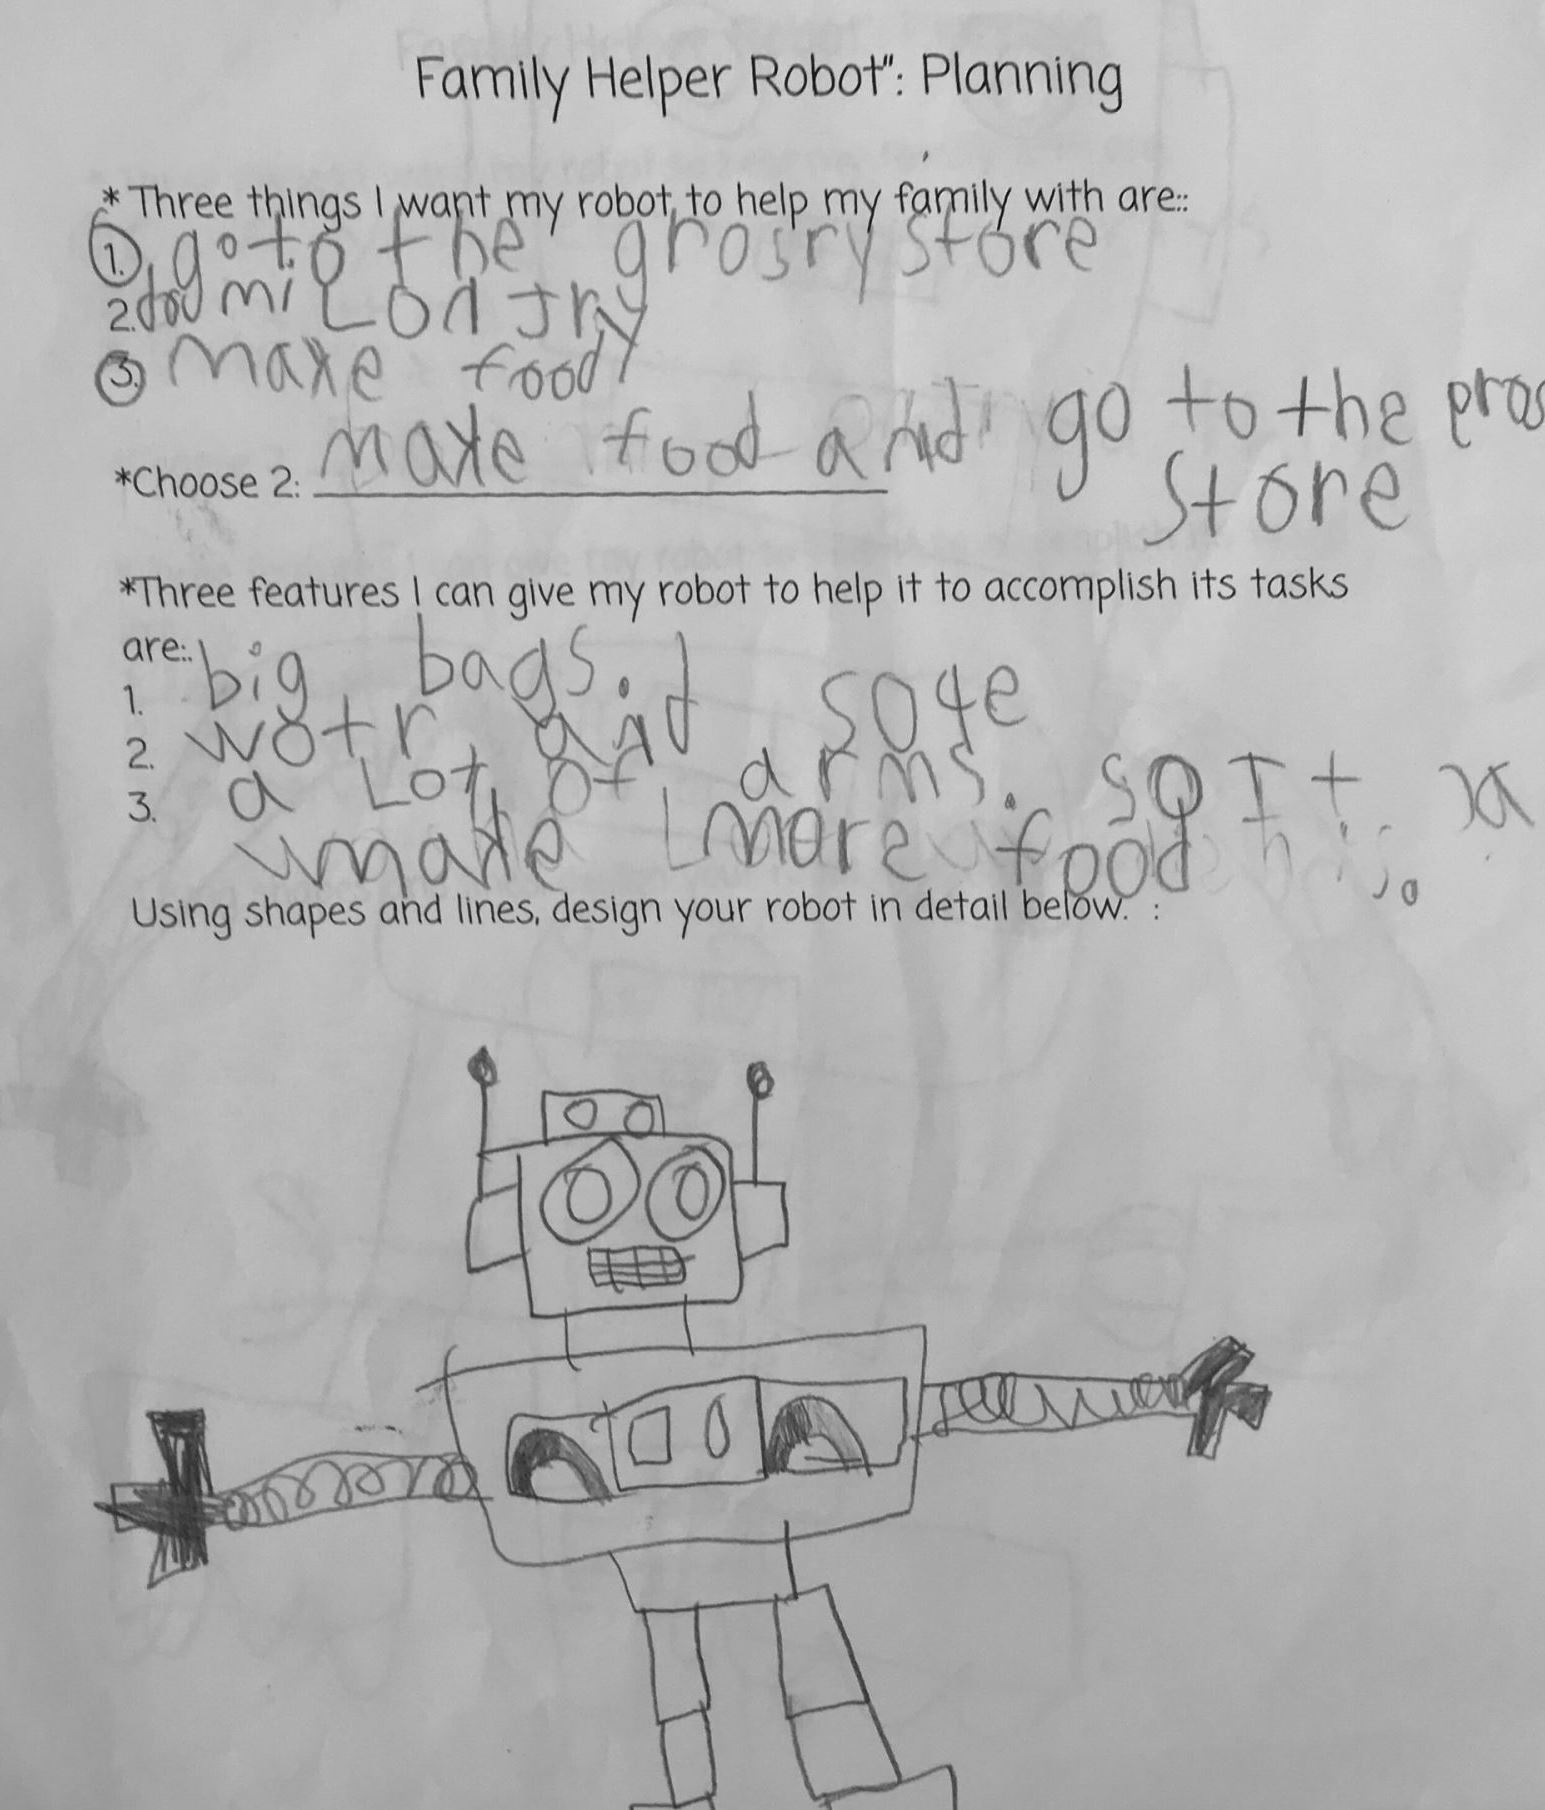 Family Helper Robot": Planning
* Three things I want my robot to help my family with are::
1. go to the grosry store
2. doo mi Lon Jry
3. make food
make food and go to the gros
*Choose 2:
store
*Three features I can give my robot to help it to accomplish its tasks
are:.
1. big bags.
2. wotr and sope
3. a Lot of arms. so It
make more food.
Using shapes and lines, design your robot in detail below. :